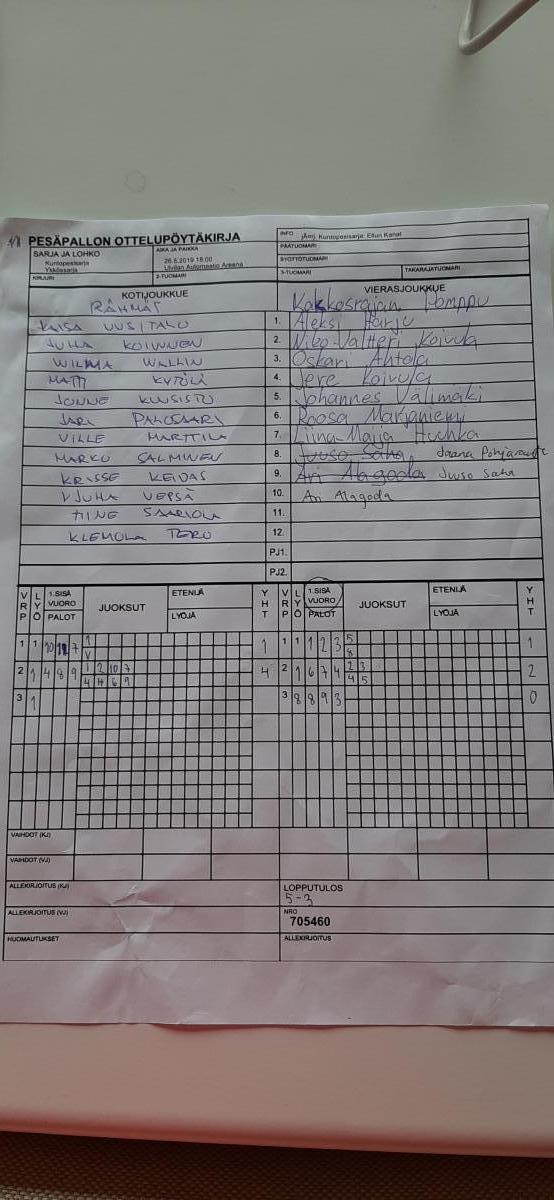 PESÄPALLON OTTELUPÖYTÄKIRJA
SARJA JA LOHKO
Kuntopesisarja
Ykkössarja
AIKA JA PAIKKA
26.6.2019 18:00
Ulvilan Automaatio Areena
INFO jAmj, Kuntopesisarja: Ellun Kanat
PÄÄTUOMARI
SYÖTTÖTUOMARI
KIRJURI 2-TUOMARI 3-TUOMARI TAKARAJATUOMARI
KOTIJOUKKUE
RÄHMÄT
KAISA UUSITALO
JUHA KOIVUNEN
WILMA WALLIN
MATTI KYTÖLÄ
JONNE KUUSISTO
JARI PALOSAARI
VILLE MARTTILA
MARKO SALMINEN
KRISSE KEIDAS
JUHA VEPSÄ
TIINE SAARIOLA
KLEMOLA TERO
VIERASJOUKKUE
Kakkosrajan Pomppu
1. Aleksi Harju
2. Niko-Valtteri Koivula
3. Oskari Ahtola
4. Jere Koivula
5. Johannes Välimäki
6. Roosa Marjaniemi
7. Liina-Maija Huhka
8. Juuso Saha Jaana
9. Ari Alagoda Juuso Saha
10. Ari Alagoda
11.
12.
PJ1.
PJ2.
VRP LYÖ 1.SISÄ VUORO PALOT JUOKSUT ETENIJÄ LYÖJÄ YHT
1 1 10 7 1 1
V
2 1 4 8 9 1 2 10 7 4
4 4 6 9
3 1
VRP LYÖ 1.SISÄ VUORO PALOT JUOKSUT ETENIJÄ LYÖJÄ YHT
1 1 1 2 3 5 1
8
2 1 6 7 4 2 3 2
4 5
3 8 8 9 3 0
VAIHDOT (KJ)
VAIHDOT (VJ)
ALLEKIRJOITUS (KJ)
ALLEKIRJOITUS (VJ)
HUOMAUTUKSET
LOPPUTULOS
5-3
NRO
705460
ALLEKIRJOITUS